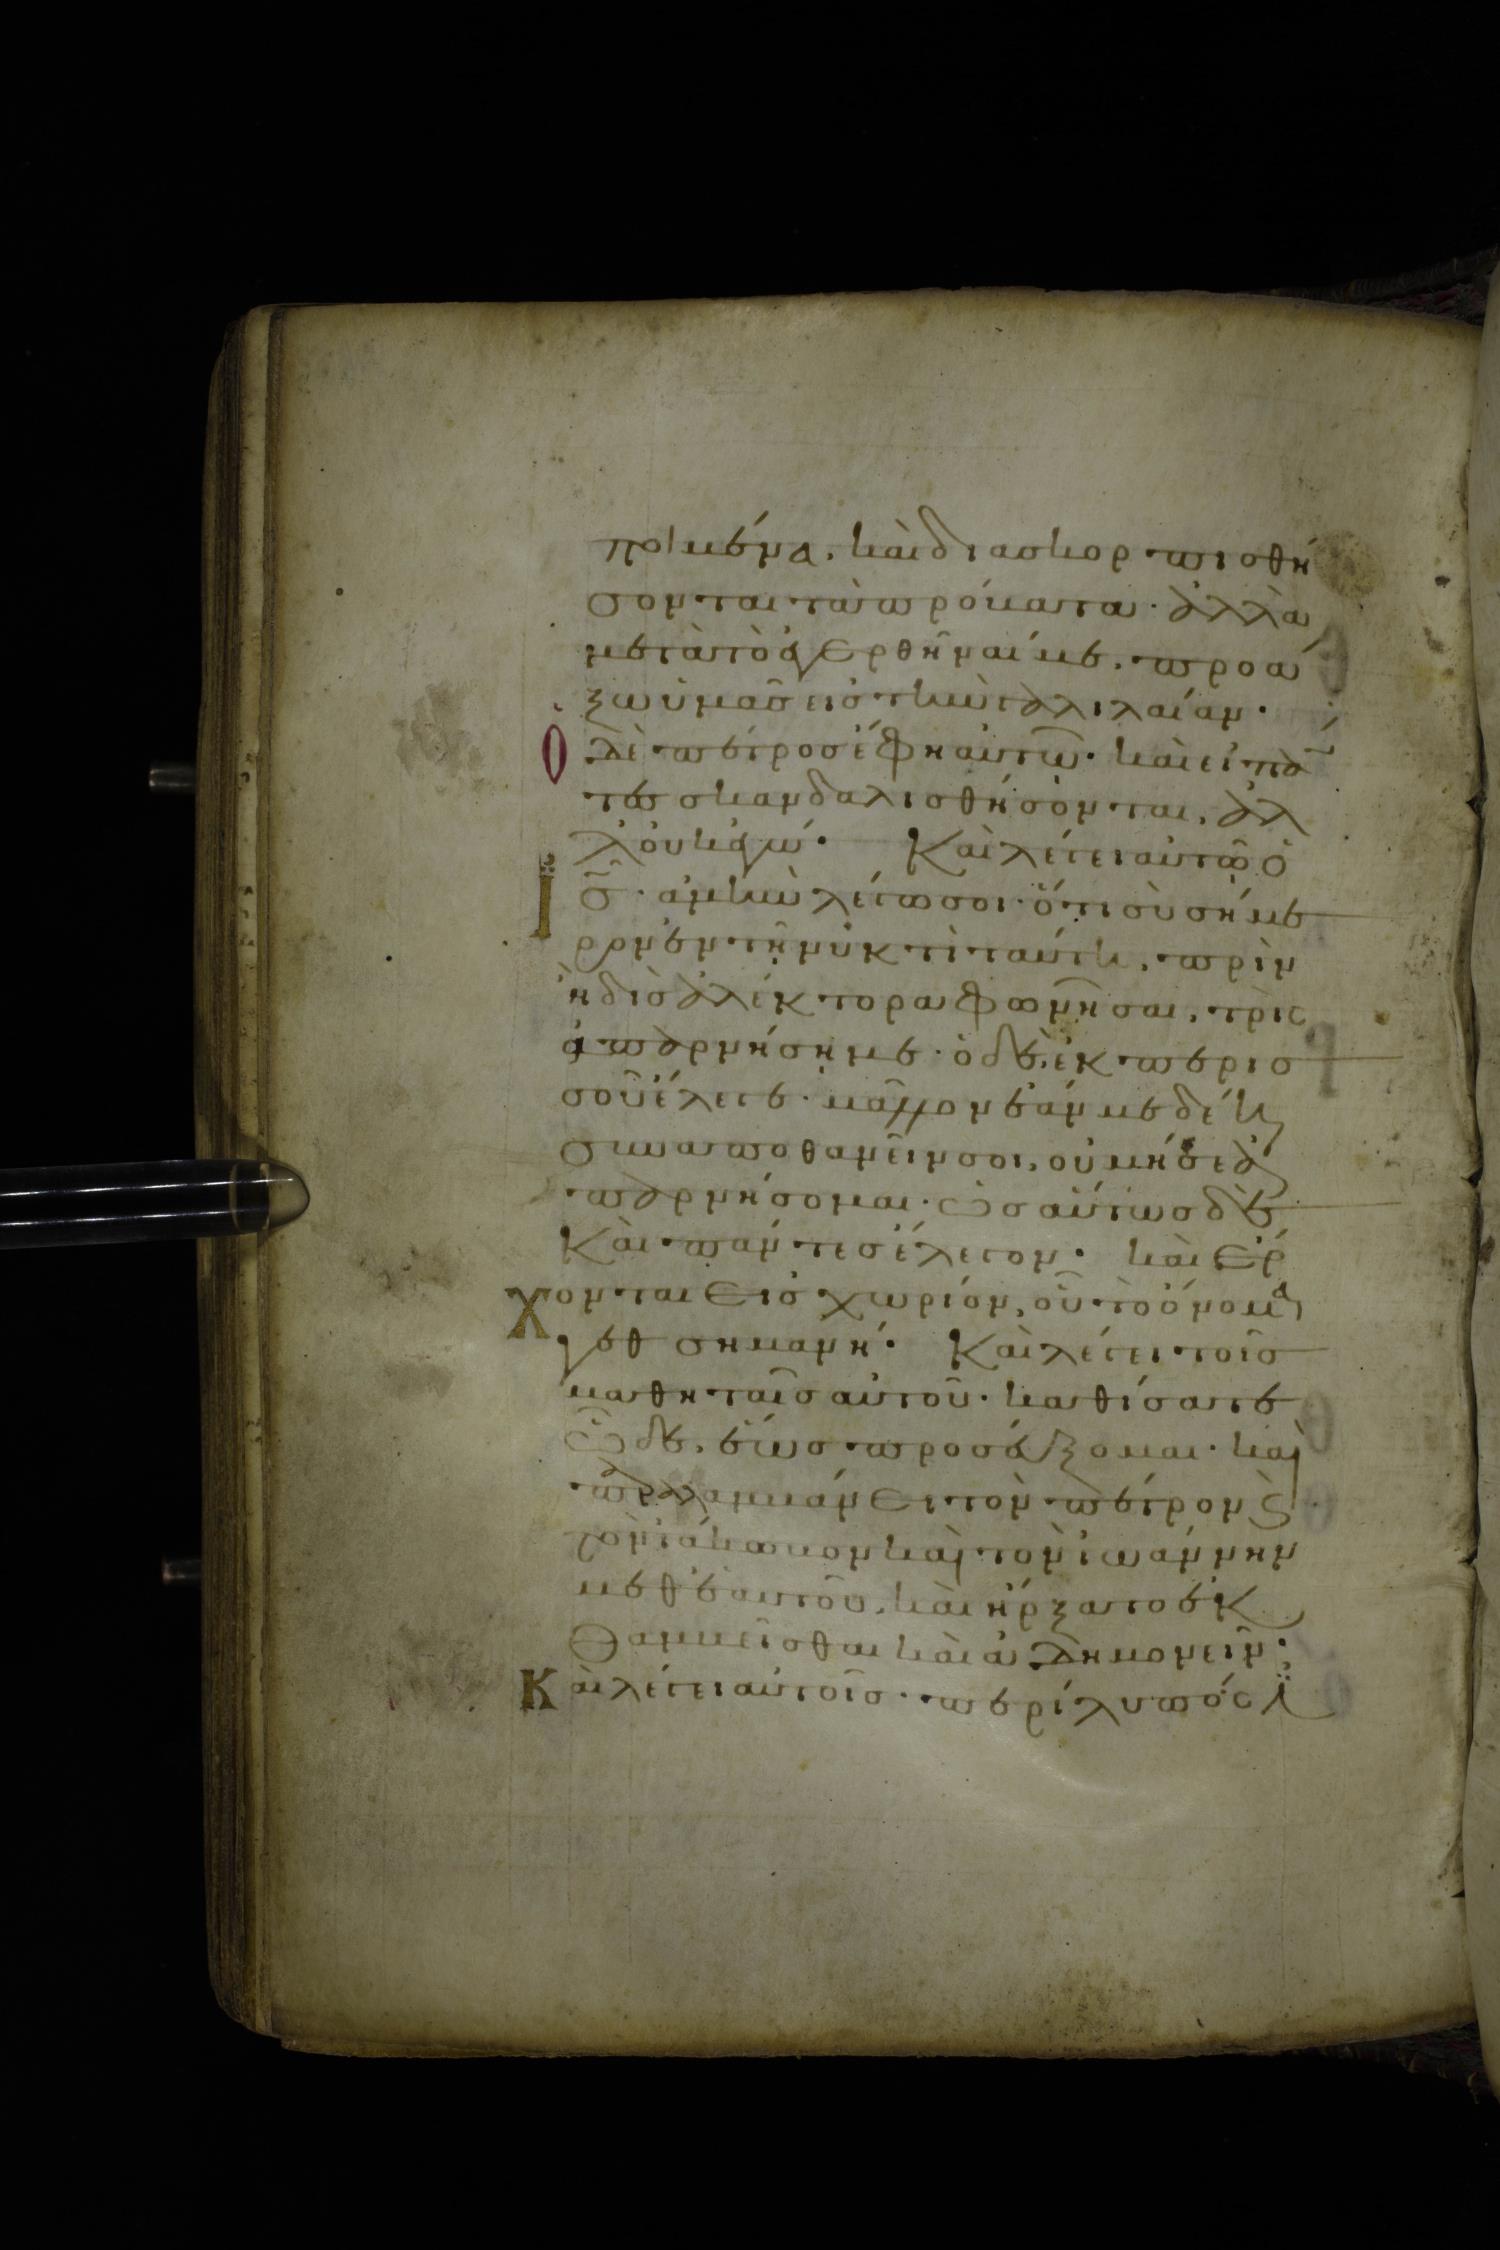 ποιμένα, καὶ διασκορπισθή
σονται τὰ πρόβατα· ἀλλὰ
μετὰ τὸ ἐγερθῆναί με, προά
ξω ὑμᾶς εἰς τὴν γαλιλαίαν·
Ὁ δὲ πέτρος ἔφη αὐτῶ· καὶ εἰ πά
τες σκανδαλισθήσονται, ἀλ
λ' οὐκ ἐγώ· Καὶ λέγει αὐτῶ ὁ
Ἰς· ἀμὴν λέγω σοι· ὅτι σὺ σήμε
ρον ἐν τῆ νυκτὶ ταύτη, πρὶν
ἢ δὶς ἀλέκτορα φωνῆσαι, τρὶς
ἀπαρνήση με· ὁ δὲ ἐκ περισ
σοῦ ἔλεγε· μᾶλλον ἐάν με δέη
συναποθανεῖν σοι, οὐ μή σε ἀ
παρνήσομαι· ὡσαύτως δὲ
καὶ πάντες ἔλεγον· καὶ ἔρ
χονται εἰς χωρίον, οὗ τὸ ὄνομα
γεθσημανή· Καὶ λέγει τοῖς
μαθηταῖς αὐτοῦ· καθίσατε
ὧδε, ἕως προσεύξομαι· καὶ
παραλαμβάνει τὸν πέτρον ϛ
τὸν ἰάκωβον καὶ τὸν ἰωάννην
μεθ' ἑαυτοῦ, καὶ ἤρξατο ἐκ
θαμβεῖσθαι καὶ ἀδημονεῖν·
Καὶ λέγει αὐτοῖς· περίλυπός ἐ